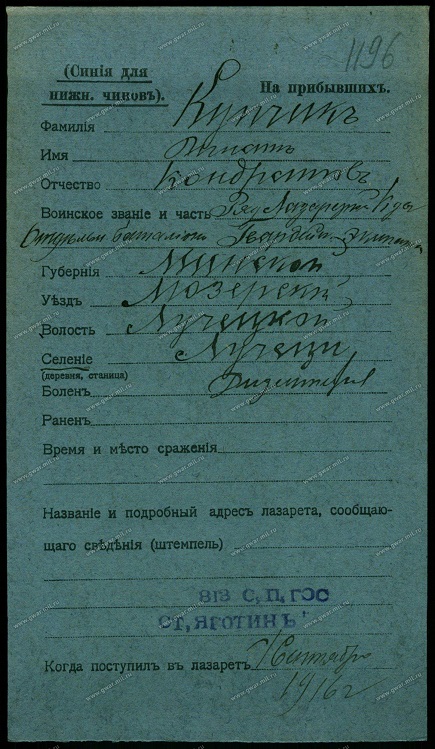 1196
(Синія для
нижн. чиновъ).
На прибывшихъ.
Фамилія Купчикъ
Имя Игнатъ
Отчество Кондратовъ
Воинское званіе и часть Ряд.
Отдѣльн. баталіона Гвардейск. Экипажа
Губернія Минской
Уѣздъ Мозерскій
Волость Лучецкой
Селеніе Лучецы
(деревня, станица)
Боленъ Дизентерія
Раненъ
Время и мѣсто сраженія
Названіе и подробный адресъ лазарета, сообщаю-
щаго свѣдѣнія (штемпель)
813 С. П. ГОС
СТ. ЯГОТИНЪ
Когда поступилъ въ лазаретъ 7 Сентября
1916 г
www.gwar.mil.ru